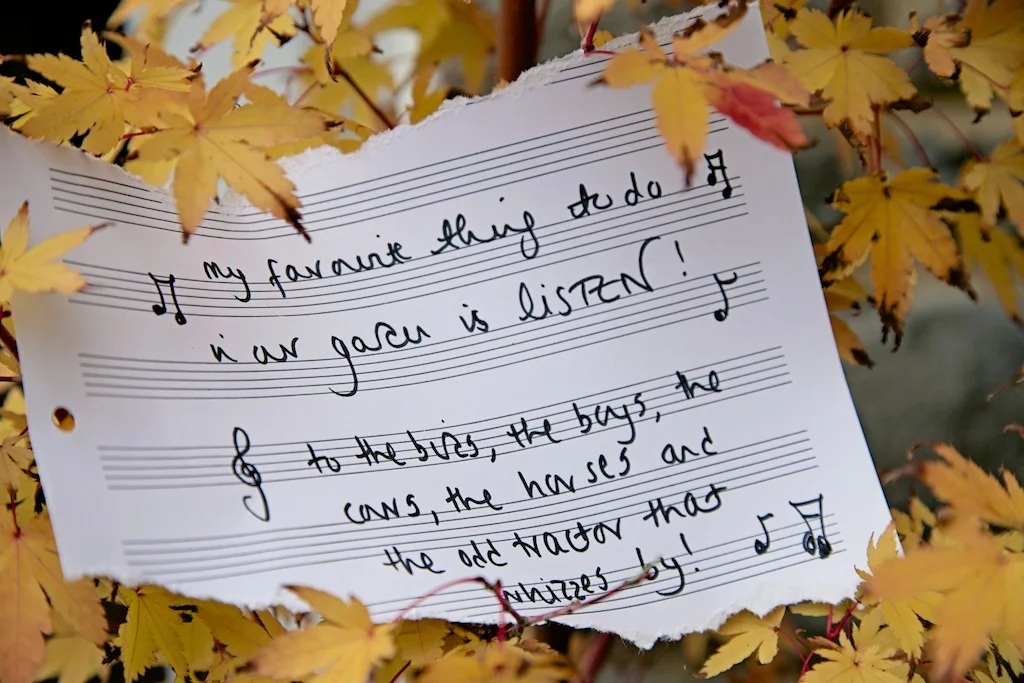 my favourite thing to do
in our garden is LISTEN!
to the birds, the bugs, the
cars, the horses and
the odd tractor that
whizzes by!